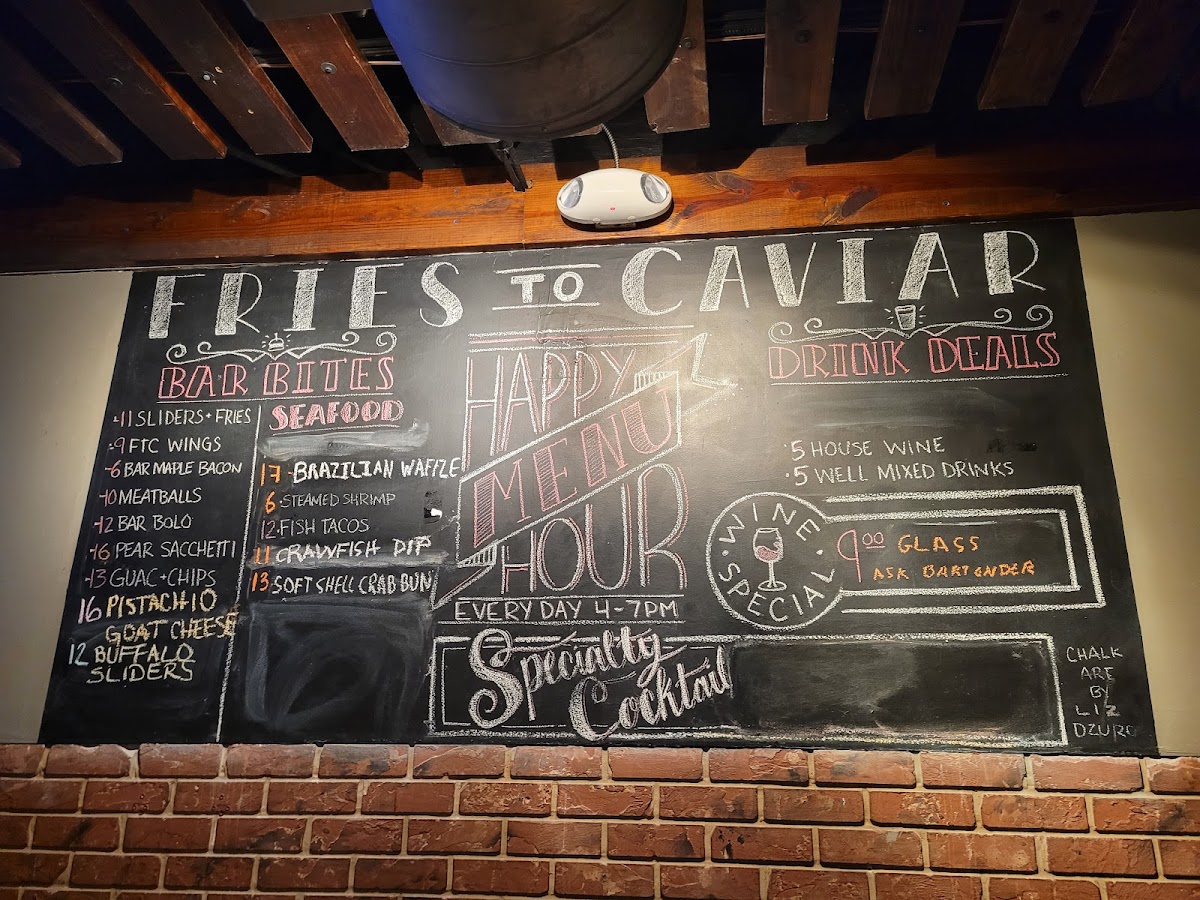 FRIES TO CAVIAR
BAR BITES
·11 SLIDERS + FRIES
·9 FTC WINGS
-6 BAR MAPLE BACON
-10 MEATBALLS
-12 BAR BOLO
-16 PEAR SACCHETTI
-13 GUAC + CHIPS
16 PISTACHIO
GOAT CHEESE
12 BUFFALO
SLIDERS
SEAFOOD
17 - BRAZILIAN WAFFLE
6 · STEAMED SHRIMP
12 · FISH TACOS
11 CRAWFISH DIP
13 SOFT SHELL CRAB BUN
HAPPY
MENU
HOUR
EVERYDAY 4-7PM
Specialty
Cocktail
DRINK DEALS
·5 HOUSE WINE
·5 WELL MIXED DRINKS
· WINE ·
SPECIAL
9.00 GLASS
ASK BARTENDER
CHALK
ARE
BY
LIZ
DZURO